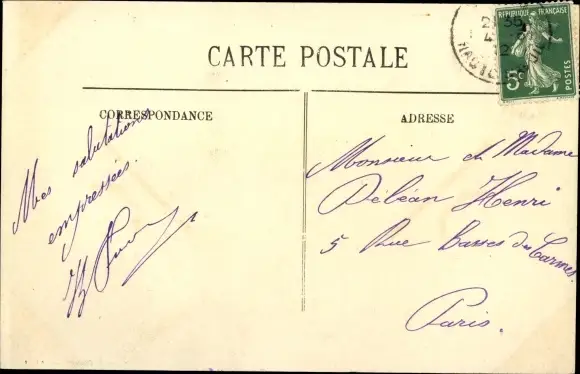 CARTE POSTALE
RÉPUBLIQUE FRANÇAISE
5c
POSTES
CORRESPONDANCE
Mes salutations
empressées.
ADRESSE
Monsieur et Madame
Débéan Henri
5 Rue Basses des Carmes
Paris.